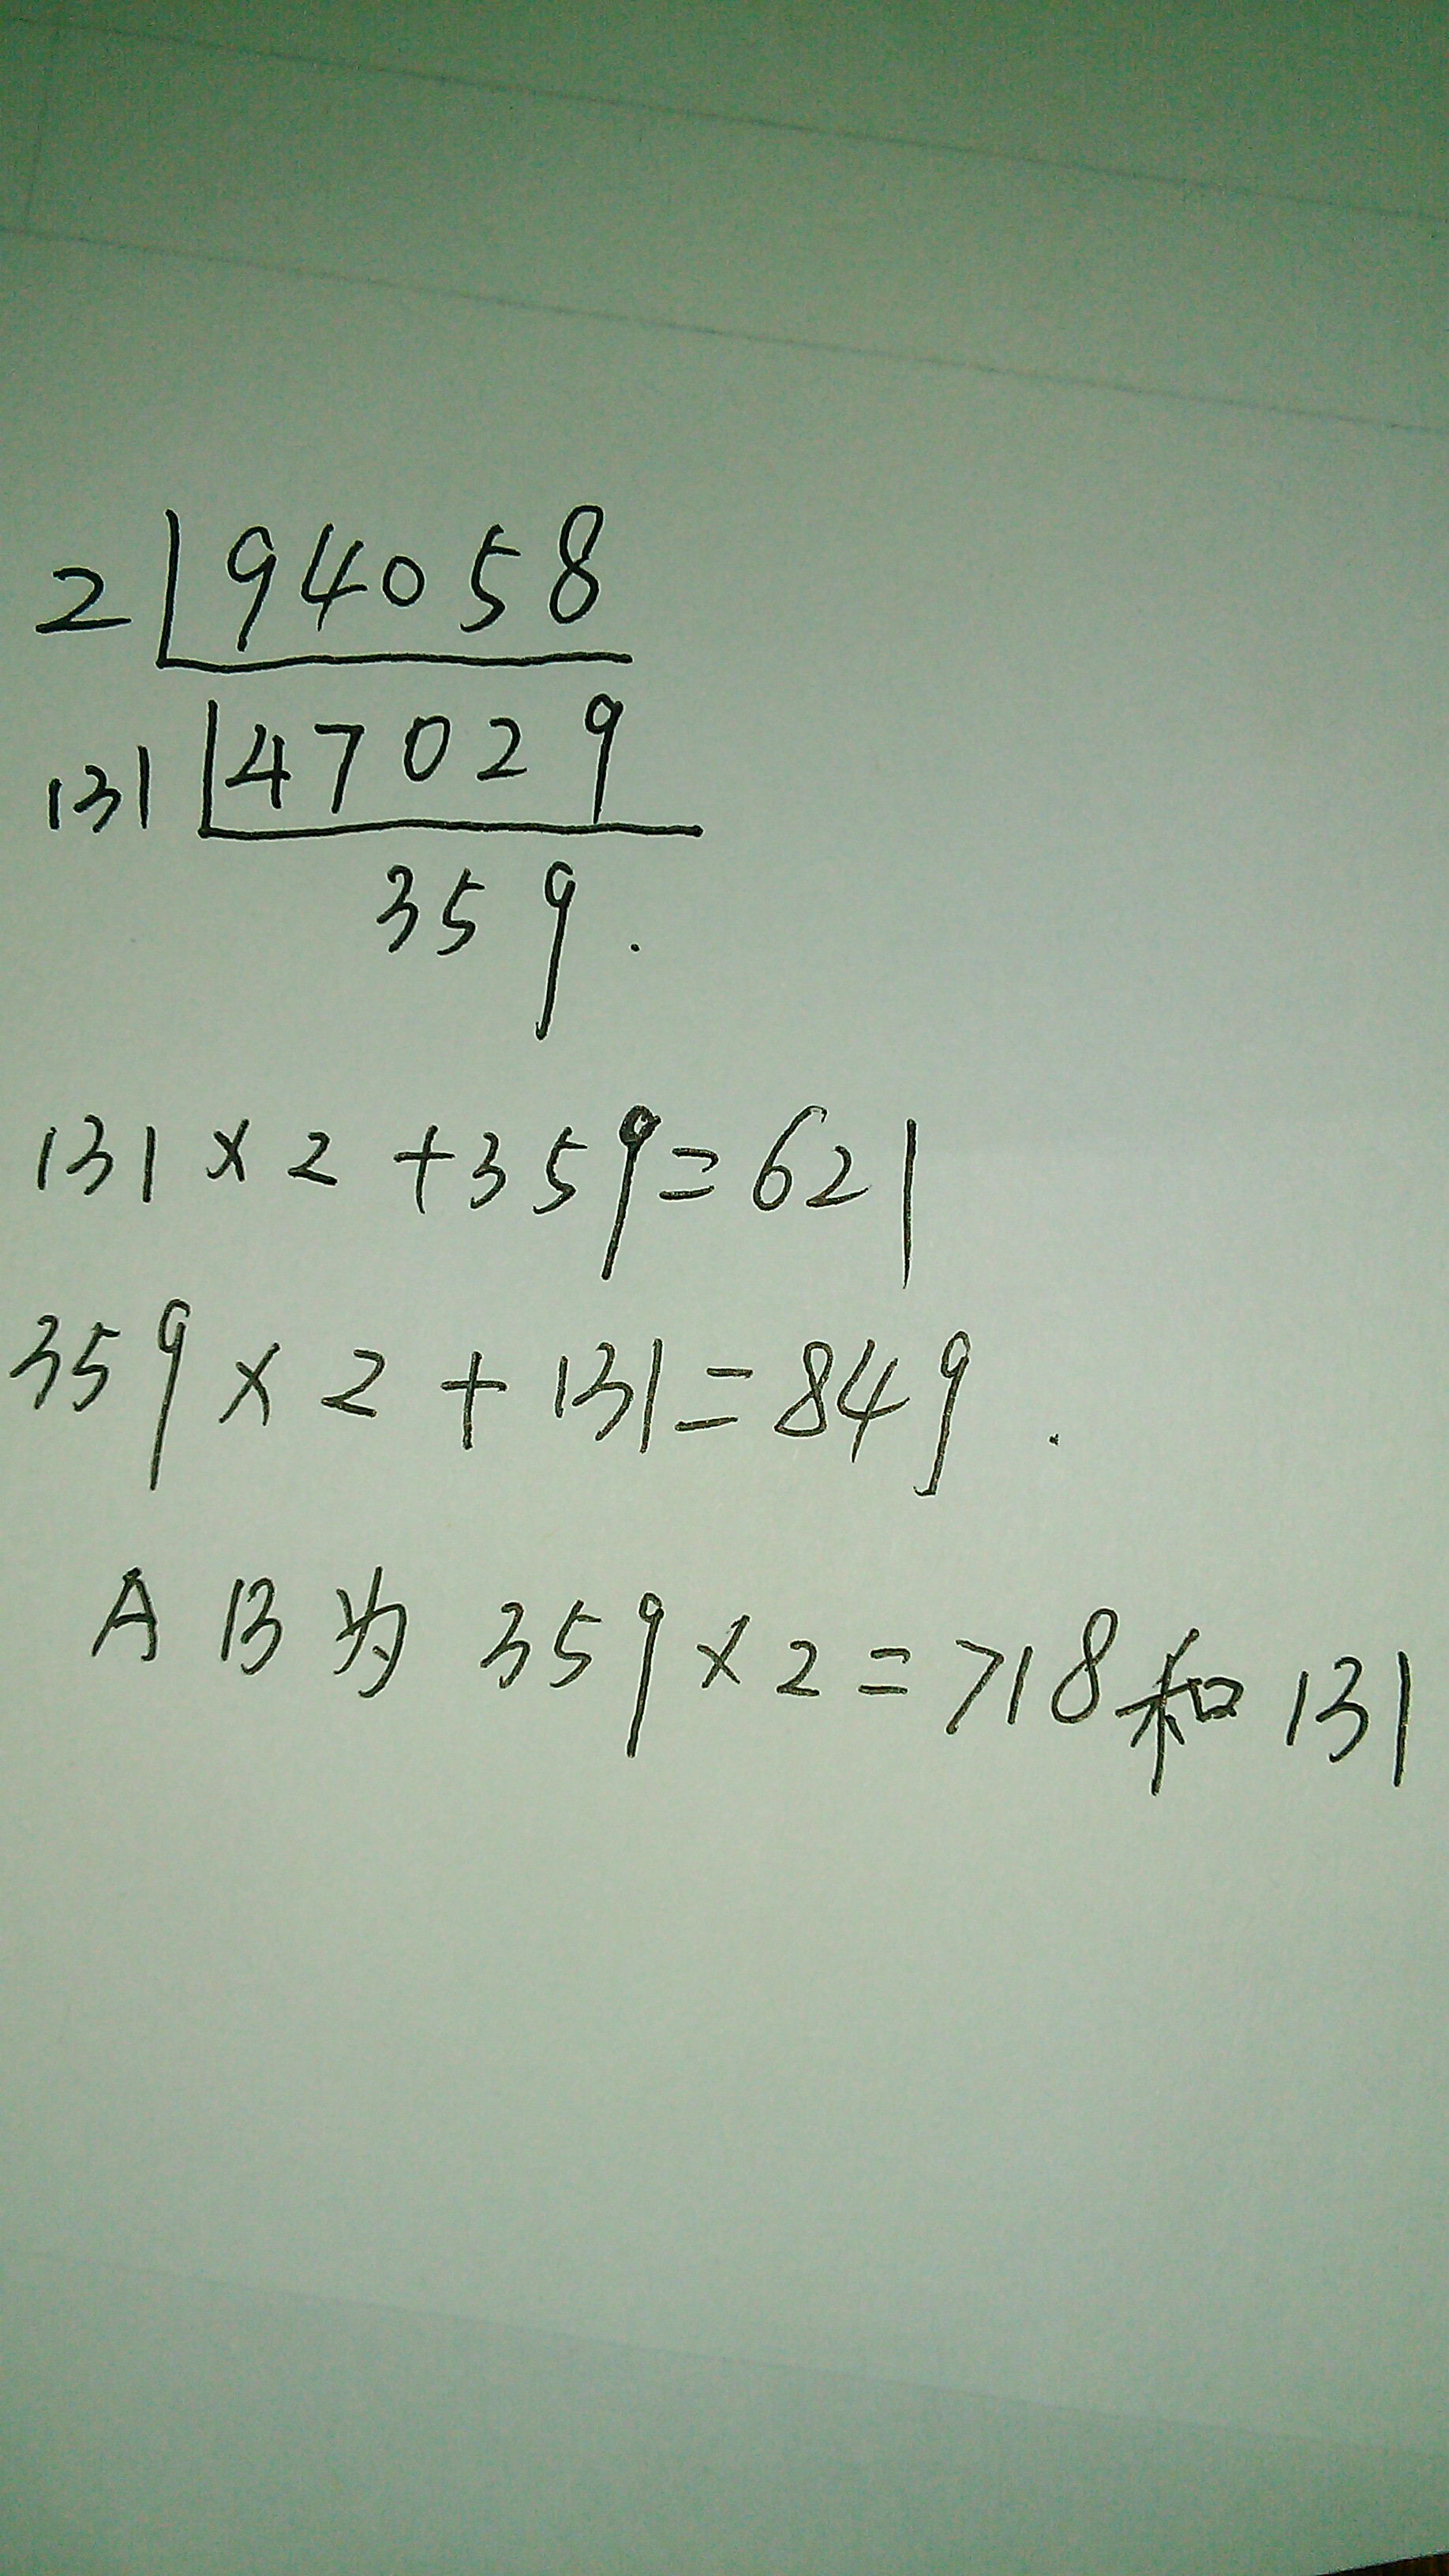 2 94058
131 47029
359.
131×2+359=621
359×2+131=849.
AB为359×2=718和131